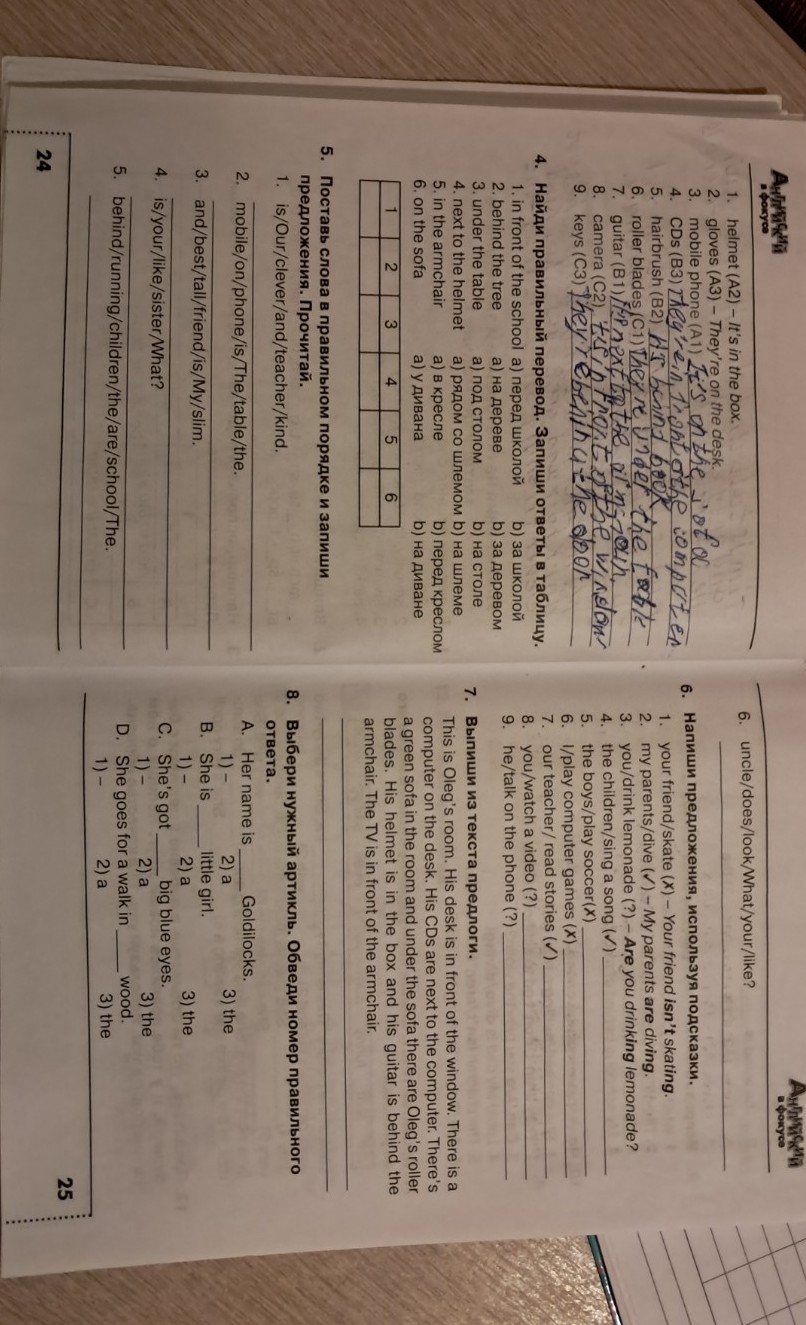 Английский
в фокусе
1. helmet (A2) – It's in the box.
2. gloves (A3) – They're on the desk.
3. mobile phone (A1) It's on the sofa
4. CDs (B3) They're in front of the computer
5. hairbrush (B2)
6. roller blades (C1) They're under the table
7. guitar (B1)
8. camera (C2) It's in front of the window
9. keys (C3) They're the door
4. Найди правильный перевод. Запиши ответы в таблицу.
1. in front of the school a) перед школой b) за школой
2. behind the tree a) на дереве b) за деревом
3. under the table a) под столом b) на столе
4. next to the helmet a) рядом со шлемом b) на шлеме
5. in the armchair a) в кресле b) перед креслом
6. on the sofa a) у дивана b) на диване
1 2 3 4 5 6
5. Поставь слова в правильном порядке и запиши
предложения. Прочитай.
1. is/Our/clever/and/teacher/kind.
2. mobile/on/phone/is/The/table/the.
3. and/best/tall/friend/is/My/slim.
4. is/your/like/sister/What?
5. behind/running/children/the/are/school/The.
24
Английский
в фокусе
6. uncle/does/look/What/your/like?
6. Напиши предложения, используя подсказки.
1. your friend/skate (✗) – Your friend isn't skating.
2. my parents/dive (✓) – My parents are diving.
3. you/drink lemonade (?) – Are you drinking lemonade?
4. the children/sing a song (✓)
5. the boys/play soccer(✗)
6. I/play computer games (✗)
7. our teacher/ read stories (✓)
8. you/watch a video (?)
9. he/talk on the phone (?)
7. Выпиши из текста предлоги.
This is Oleg's room. His desk is in front of the window. There is a
computer on the desk. His CDs are next to the computer. There's
a green sofa in the room and under the sofa there are Oleg's roller
blades. His helmet is in the box and his guitar is behind the
armchair. The TV is in front of the armchair.
8. Выбери нужный артикль. Обведи номер правильного
ответа.
A. Her name is ____ Goldilocks.
1) – 2) a 3) the
B. She is ____ little girl.
1) – 2) a 3) the
C. She's got ____ big blue eyes.
1) – 2) a 3) the
D. She goes for a walk in ____ wood.
1) – 2) a 3) the
25